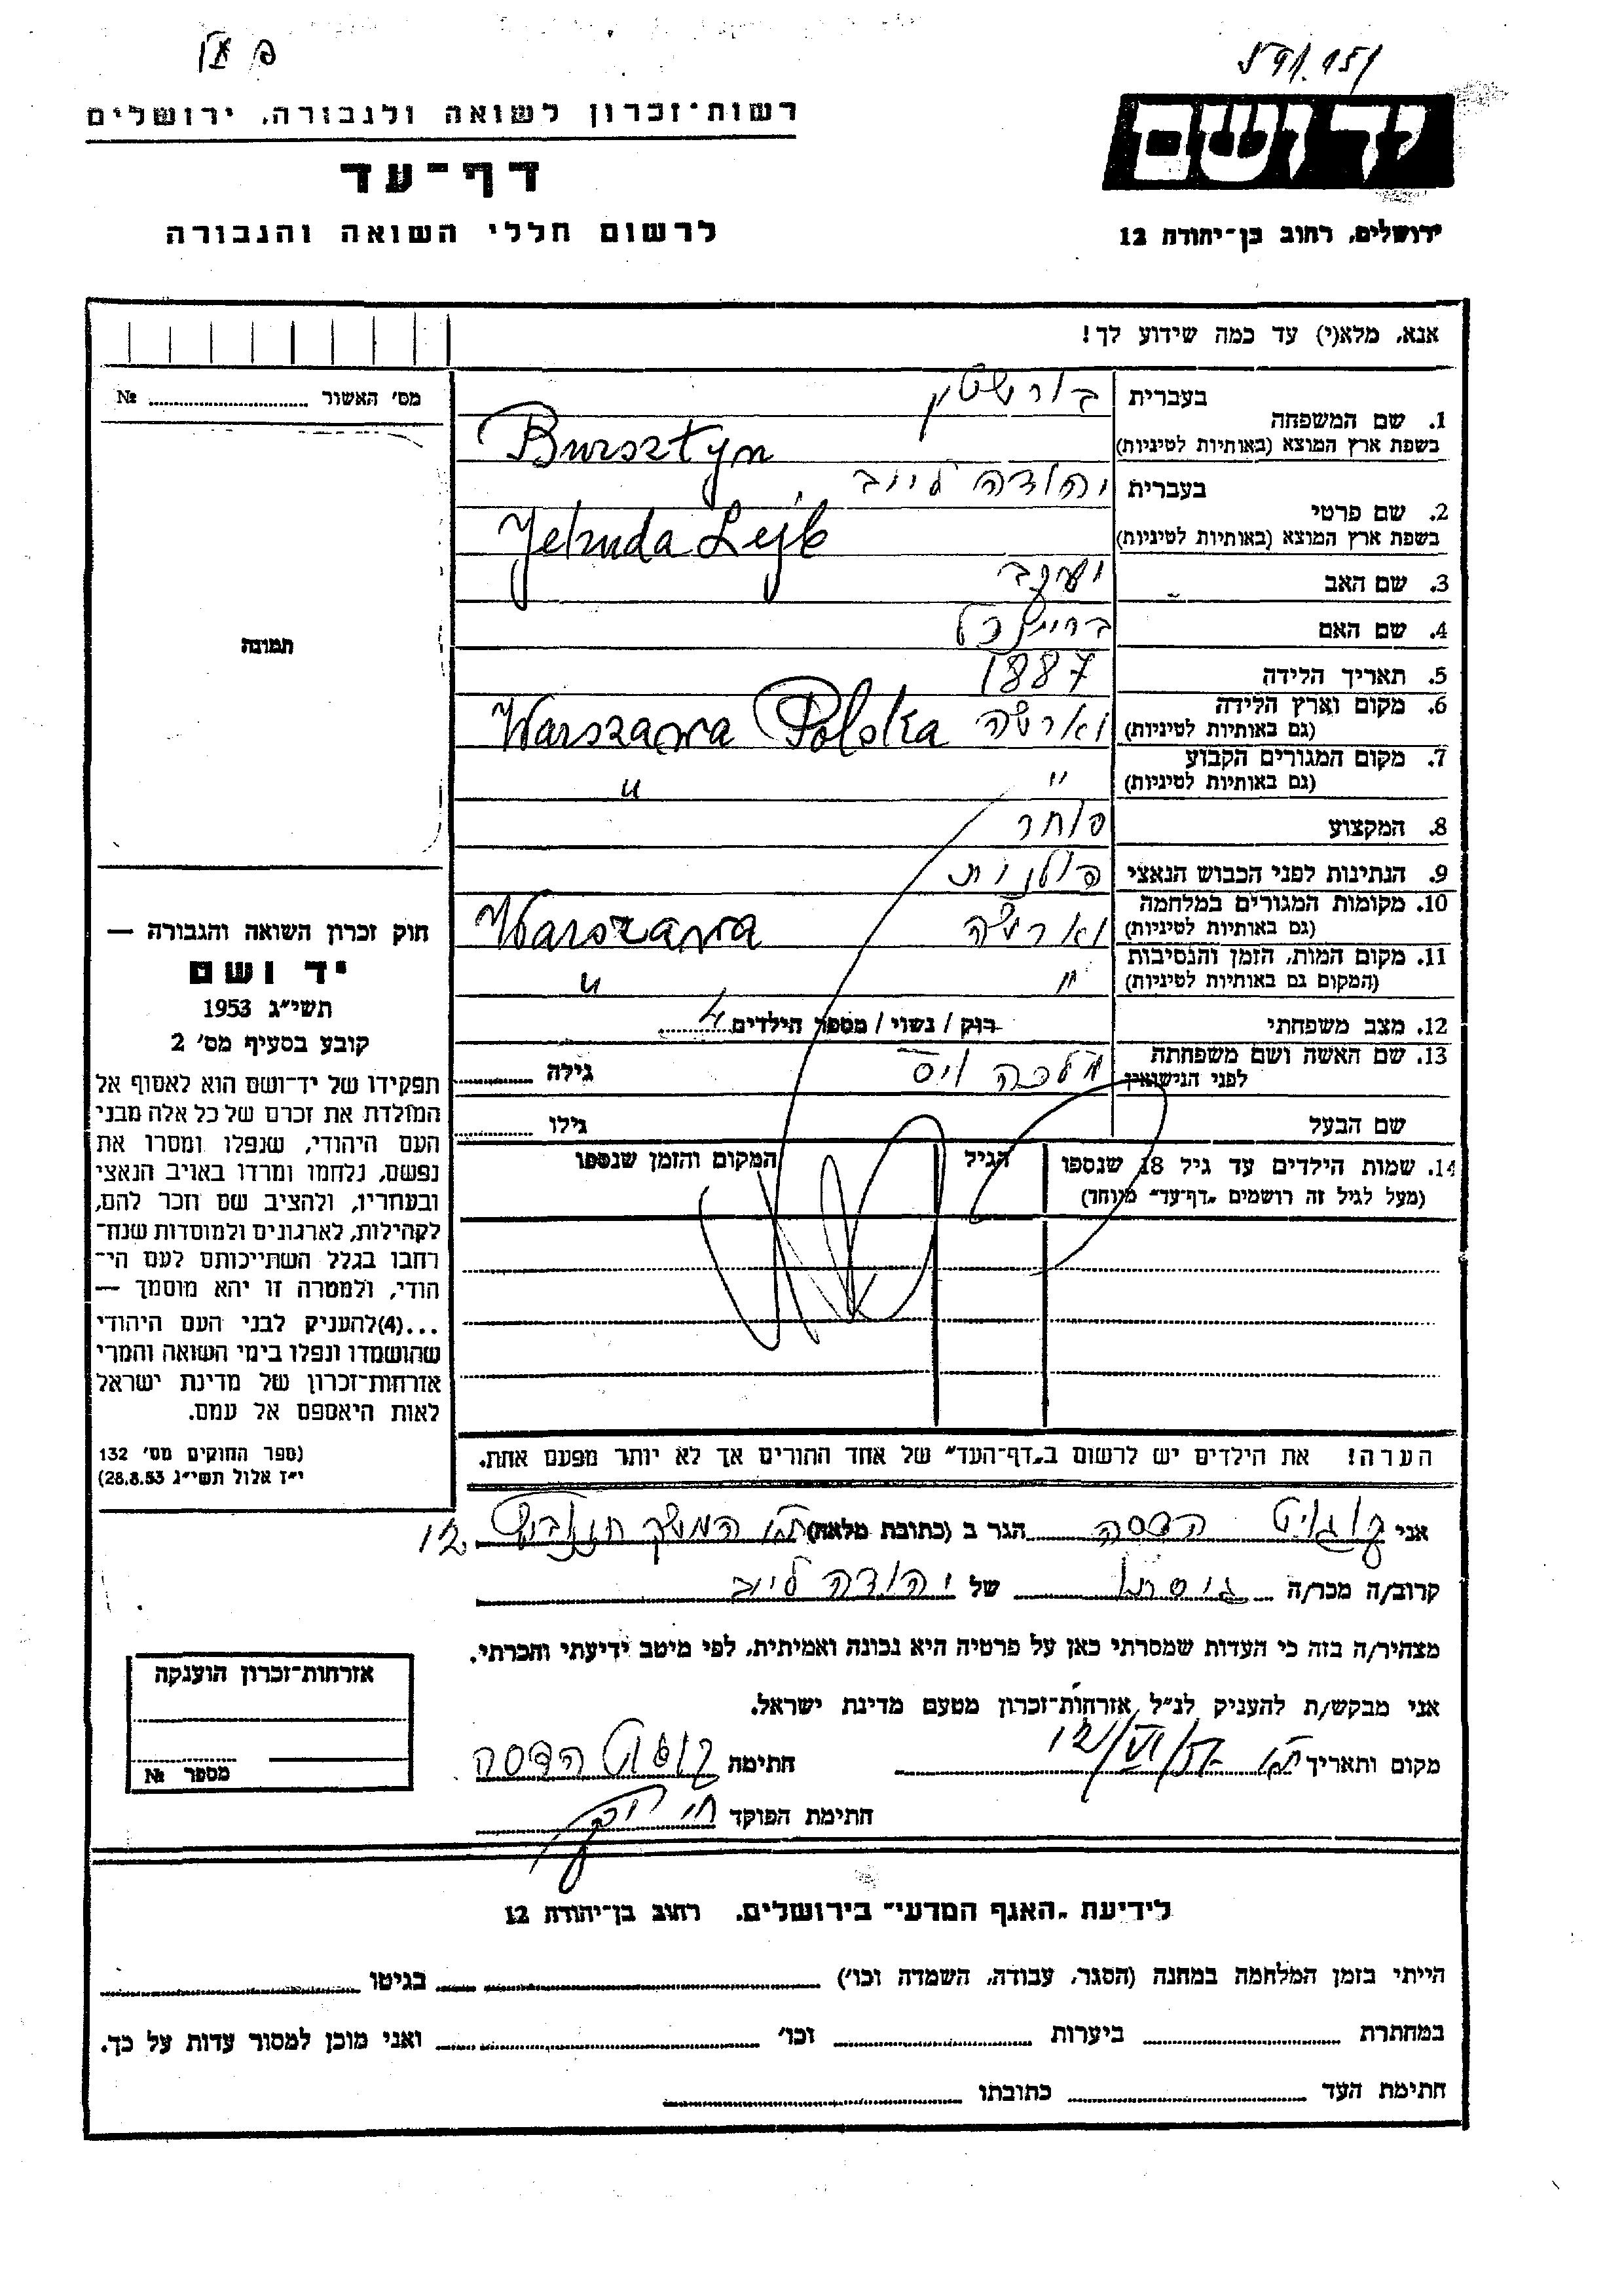 רשות־זכרון לשואה ולגבורה, ירושלים
דף־עד
לרשום חללי השואה והגבורה
יד ושם
ירושלים, רחוב בן־יהודה 12
אנא, מלא(י) עד כמה שידוע לך!
מס' האשור № 
תמונה
1. שם המשפחה
בעברית בורשטין
בשפת ארץ המוצא (באותיות לטיניות) Bursztyn
2. שם פרטי
בעברית יהודה לייב
בשפת ארץ המוצא (באותיות לטיניות) Jehuda Lejb
3. שם האב יעקב
4. שם האם
5. תאריך הלידה 1887
6. מקום וארץ הלידה
(גם באותיות לטיניות) וארשה Warszawa Polska
7. מקום המגורים הקבוע
(גם באותיות לטיניות) " "
8. המקצוע סוחר
9. הנתינות לפני הכבוש הנאצי פולנית
10. מקומות המגורים במלחמה
(גם באותיות לטיניות) וארשה Warszawa
11. מקום המות, הזמן והנסיבות
(המקום גם באותיות לטיניות) " "
12. מצב משפחתי רוק / נשוי / מספר הילדים 4
13. שם האשה ושם משפחתה
לפני הנישואין מלכה וייס גילה
שם הבעל גילו
14. שמות הילדים עד גיל 18 שנספו
(מעל לגיל זה רושמים "דף־עד" מיוחד)
הגיל
המקום והזמן שנספו
הערה! את הילדים יש לרשום ב"דף־העד" של אחד ההורים אך לא יותר מפעם אחת.
חוק זכרון השואה והגבורה —
יד ושם
תשי"ג 1953
קובע בסעיף מס' 2
תפקידו של יד־ושם הוא לאסוף אל
המולדת את זכרם של כל אלה מבני
העם היהודי, שנפלו ומסרו את
נפשם, נלחמו ומרדו באויב הנאצי
ובעוזריו, ולהציב שם וזכר להם,
לקהילות, לארגונים ולמוסדות שנח־
רבו בגלל השתייכותם לעם הי־
הודי, ולמטרה זו יהא מוסמך —
...(4)להעניק לבני העם היהודי
שהושמדו ונפלו בימי השואה והמרי
אזרחות־זכרון של מדינת ישראל
לאות היאספם אל עמם.
(ספר החוקים מס' 132
י"ז אלול תשי"ג 28.8.53)
אני הדסה הגר ב (כתובת מלאה)
קרוב/ה מכר/ה גיסתו של יהודה לייב
מצהיר/ה בזה כי העדות שמסרתי כאן על פרטיה היא נכונה ואמיתית, לפי מיטב ידיעתי והכרתי.
אני מבקש/ת להעניק לנ"ל אזרחות־זכרון מטעם מדינת ישראל.
מקום ותאריך חתימה הדסה
חתימת הפוקד
אזרחות־זכרון הוענקה
מספר №
לידיעת "האגף המדעי" בירושלים, רחוב בן־יהודה 12
הייתי בזמן המלחמה במחנה (הסגר, עבודה, השמדה וכו') בגיטו
במחתרת ביערות וכו' ואני מוכן למסור עדות על כך.
חתימת העד כתובתו